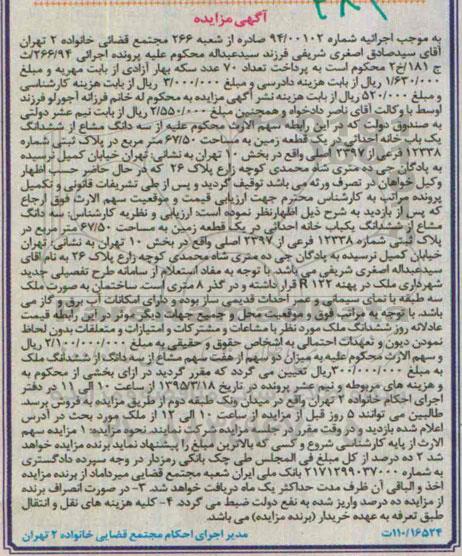 آگهی مزایده
به موجب اجرائیه شماره 94/00102 صادره از شعبه 266 مجتمع قضائی خانواده 2 تهران
آقای سیدصادق اصغری شریفی فرزند سیدعبداله محکوم علیه پرونده اجرائی 266/94/ث
ج 181/خ2 محکوم است به پرداخت تعداد 70 عدد سکه بهار آزادی از بابت مهریه و مبلغ
1/630/000 ریال از بابت هزینه دادرسی و مبلغ 3/000/000 ریال از بابت هزینه کارشناسی
و مبلغ 520/000 ریال از بابت هزینه نشر آگهی مزایده به محکوم له خانم فرزانه آجورلو فرزند
اوسط با وکالت آقای ناصر دادخواه و همچنین مبلغ 2/550/000 ریال از بابت نیم عشر دولتی
به صندوق دولت که در این رابطه سهم الارث محکوم علیه از سه دانگ مشاع از ششدانگ
یک باب خانه احداثی در یک قطعه زمین به مساحت 67/50 متر مربع در پلاک ثبتی شماره
12338 فرعی از 2397 اصلی واقع در بخش 10 تهران به نشانی: تهران خیابان کمیل نرسیده
به پادگان جی ده متری شاه محمدی کوچه زارع پلاک 26 که در حال حاضر حسب اظهار
وکیل خواهان در تصرف ورثه می باشد توقیف گردید و پس از طی تشریفات قانونی و تکمیل
پرونده مراتب به کارشناس محترم جهت ارزیابی قیمت و موقعیت سهم الارث فوق ارجاع
که پس از بازدید به شرح ذیل اظهارنظر نموده است: ارزیابی و نظریه کارشناس: سه دانگ
مشاع از ششدانگ یکباب خانه احداثی در یک قطعه زمین به مساحت 67/50 متر مربع در
پلاک ثبتی شماره 12338 فرعی از 2397 اصلی واقع در بخش 10 تهران به نشانی: تهران
خیابان کمیل نرسیده به پادگان جی ده متری شاه محمدی کوچه زارع پلاک 26 به نام آقای
سیدعبداله اصغری شریفی می باشد. با توجه به مفاد استعلام از سامانه طرح تفصیلی جدید
شهرداری ملک در پهنه R122 قرار داشته و در گذر 8 متری است. ساختمان به صورت ملک
سه طبقه با نمای سیمانی و عمر احداث قدیمی ساز بوده و دارای امکانات آب برق و گاز می
باشد. با توجه به مراتب فوق و موقعیت محل و جمیع جهات دیگر موثر در این رابطه قیمت
عادلانه روز ششدانگ ملک مورد نظر با مشاعات و مشترکات و امتیازات و متعلقات بدون لحاظ
نمودن دیون و تعهدات احتمالی به اشخاص حقوق و حقیقی به مبلغ 2/100/000/000 ریال
و سهم الارث محکوم علیه به میزان دو سهم از هفت سهم مشاع از سه دانگ از ششدانگ ملک
به مبلغ 300/000/000 ریال تعیین می گردد که مقرر گردید در ازای بخشی از محکوم به
و هزینه های مربوطه و نیم عشر پرونده در تاریخ 1395/3/18 از ساعت 10 الی 11 در دفتر
اجرای احکام خانواده 2 تهران واقع در میدان ونک طبقه دوم از طریق مزایده به فروش برسد.
طالبین می توانند 5 روز قبل از مزایده از ساعت 10 الی 12 از ملک مورد بحث در آدرس
اعلام شده بازدید و در وقت مقرر در جلسه مزایده شرکت نمایند. نحوه مزایده: 1 مزایده سهم
الارث از پایه کارشناسی شروع و کسی که بالاترین مبلغ را پیشنهاد نماید برنده مزایده خواهد
شد 2 ده درصد از کل مبلغ فی المجلس طی چک بانکی رمزدار در وجه سپرده دادگستری
به شماره 2171299037000 بانک ملی ایران شعبه مجتمع قضایی میرداماد از برنده مزایده
اخذ و الباقی آن ظرف مدت حداکثر یک ماه دریافت خواهد شد. 3- در صورت انصراف برنده
از مزایده ده درصد واریز شده به نفع دولت ضبط می گردد 4- کلیه هزینه های نقل و انتقال
طبق تعرفه به عهده خریدار (برنده مزایده) می باشد.
110/16524/ت مدیر اجرای احکام مجتمع قضایی خانواده 2 تهران